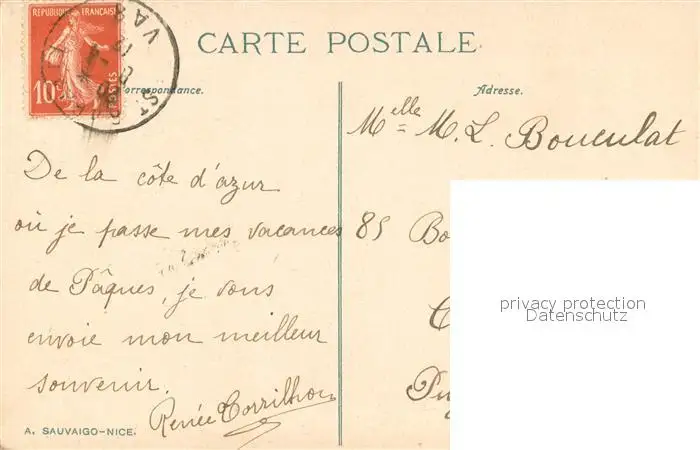 RÉPUBLIQUE FRANÇAISE
10
POSTES
ST
VAR
CARTE POSTALE
Correspondance.
Adresse.
Melle M. L. Bouculat
De la côte d'azur
où je passe mes vacances
de Pâques, je vous
envoie mon meilleur
souvenir.
Renée Corrilhon
85 Bo
C
Pu
privacy protection
Datenschutz
A. SAUVAIGO-NICE.